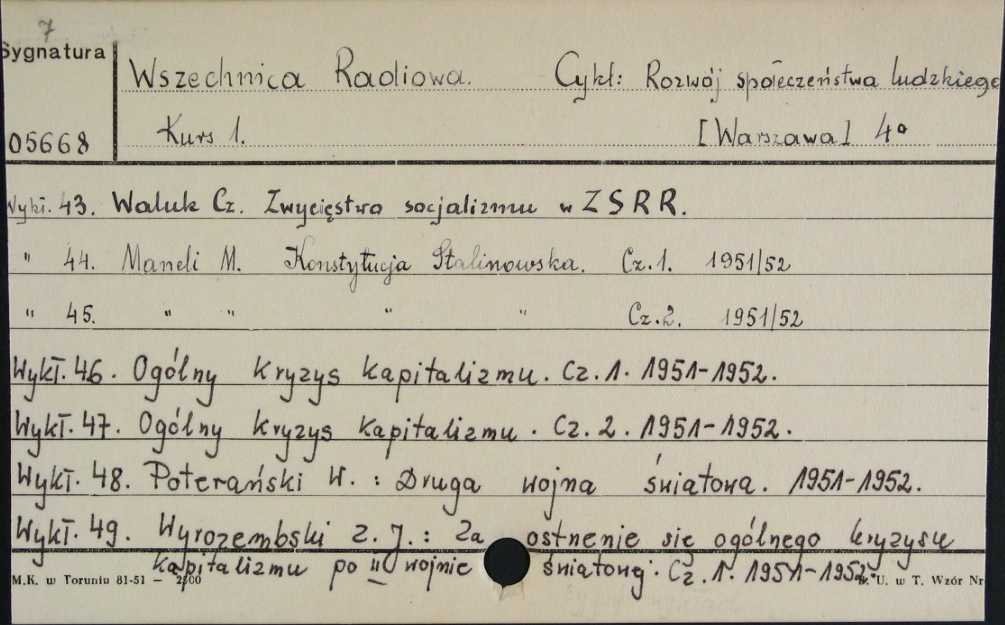 7
Sygnatura
Wszechnica Radiowa. Cykl: Rozwój społeczeństwa ludzkiego
05668
Kurs 1. [Warszawa] 4°
Wykł. 43. Waluk Cz. Zwycięstwo socjalizmu w ZSRR.
" 44. Maneli M. Konstytucja Stalinowska. Cz.1. 1951/52
" 45. " " " " Cz.2. 1951/52
Wykł. 46. Ogólny kryzys kapitalizmu. Cz. 1. 1951-1952.
Wykł. 47. Ogólny kryzys kapitalizmu. Cz. 2. 1951-1952.
Wykł. 48. Poterański W. : Druga wojna światowa. 1951-1952.
Wykł. 49. Wyrozembski Z. J. : Za ostnenie się ogólnego kryzysu
kapitalizmu po II wojnie światowej. Cz. 1. 1951-1952.
M.K. w Toruniu 81-51 — 2500 U. w T. Wzór Nr